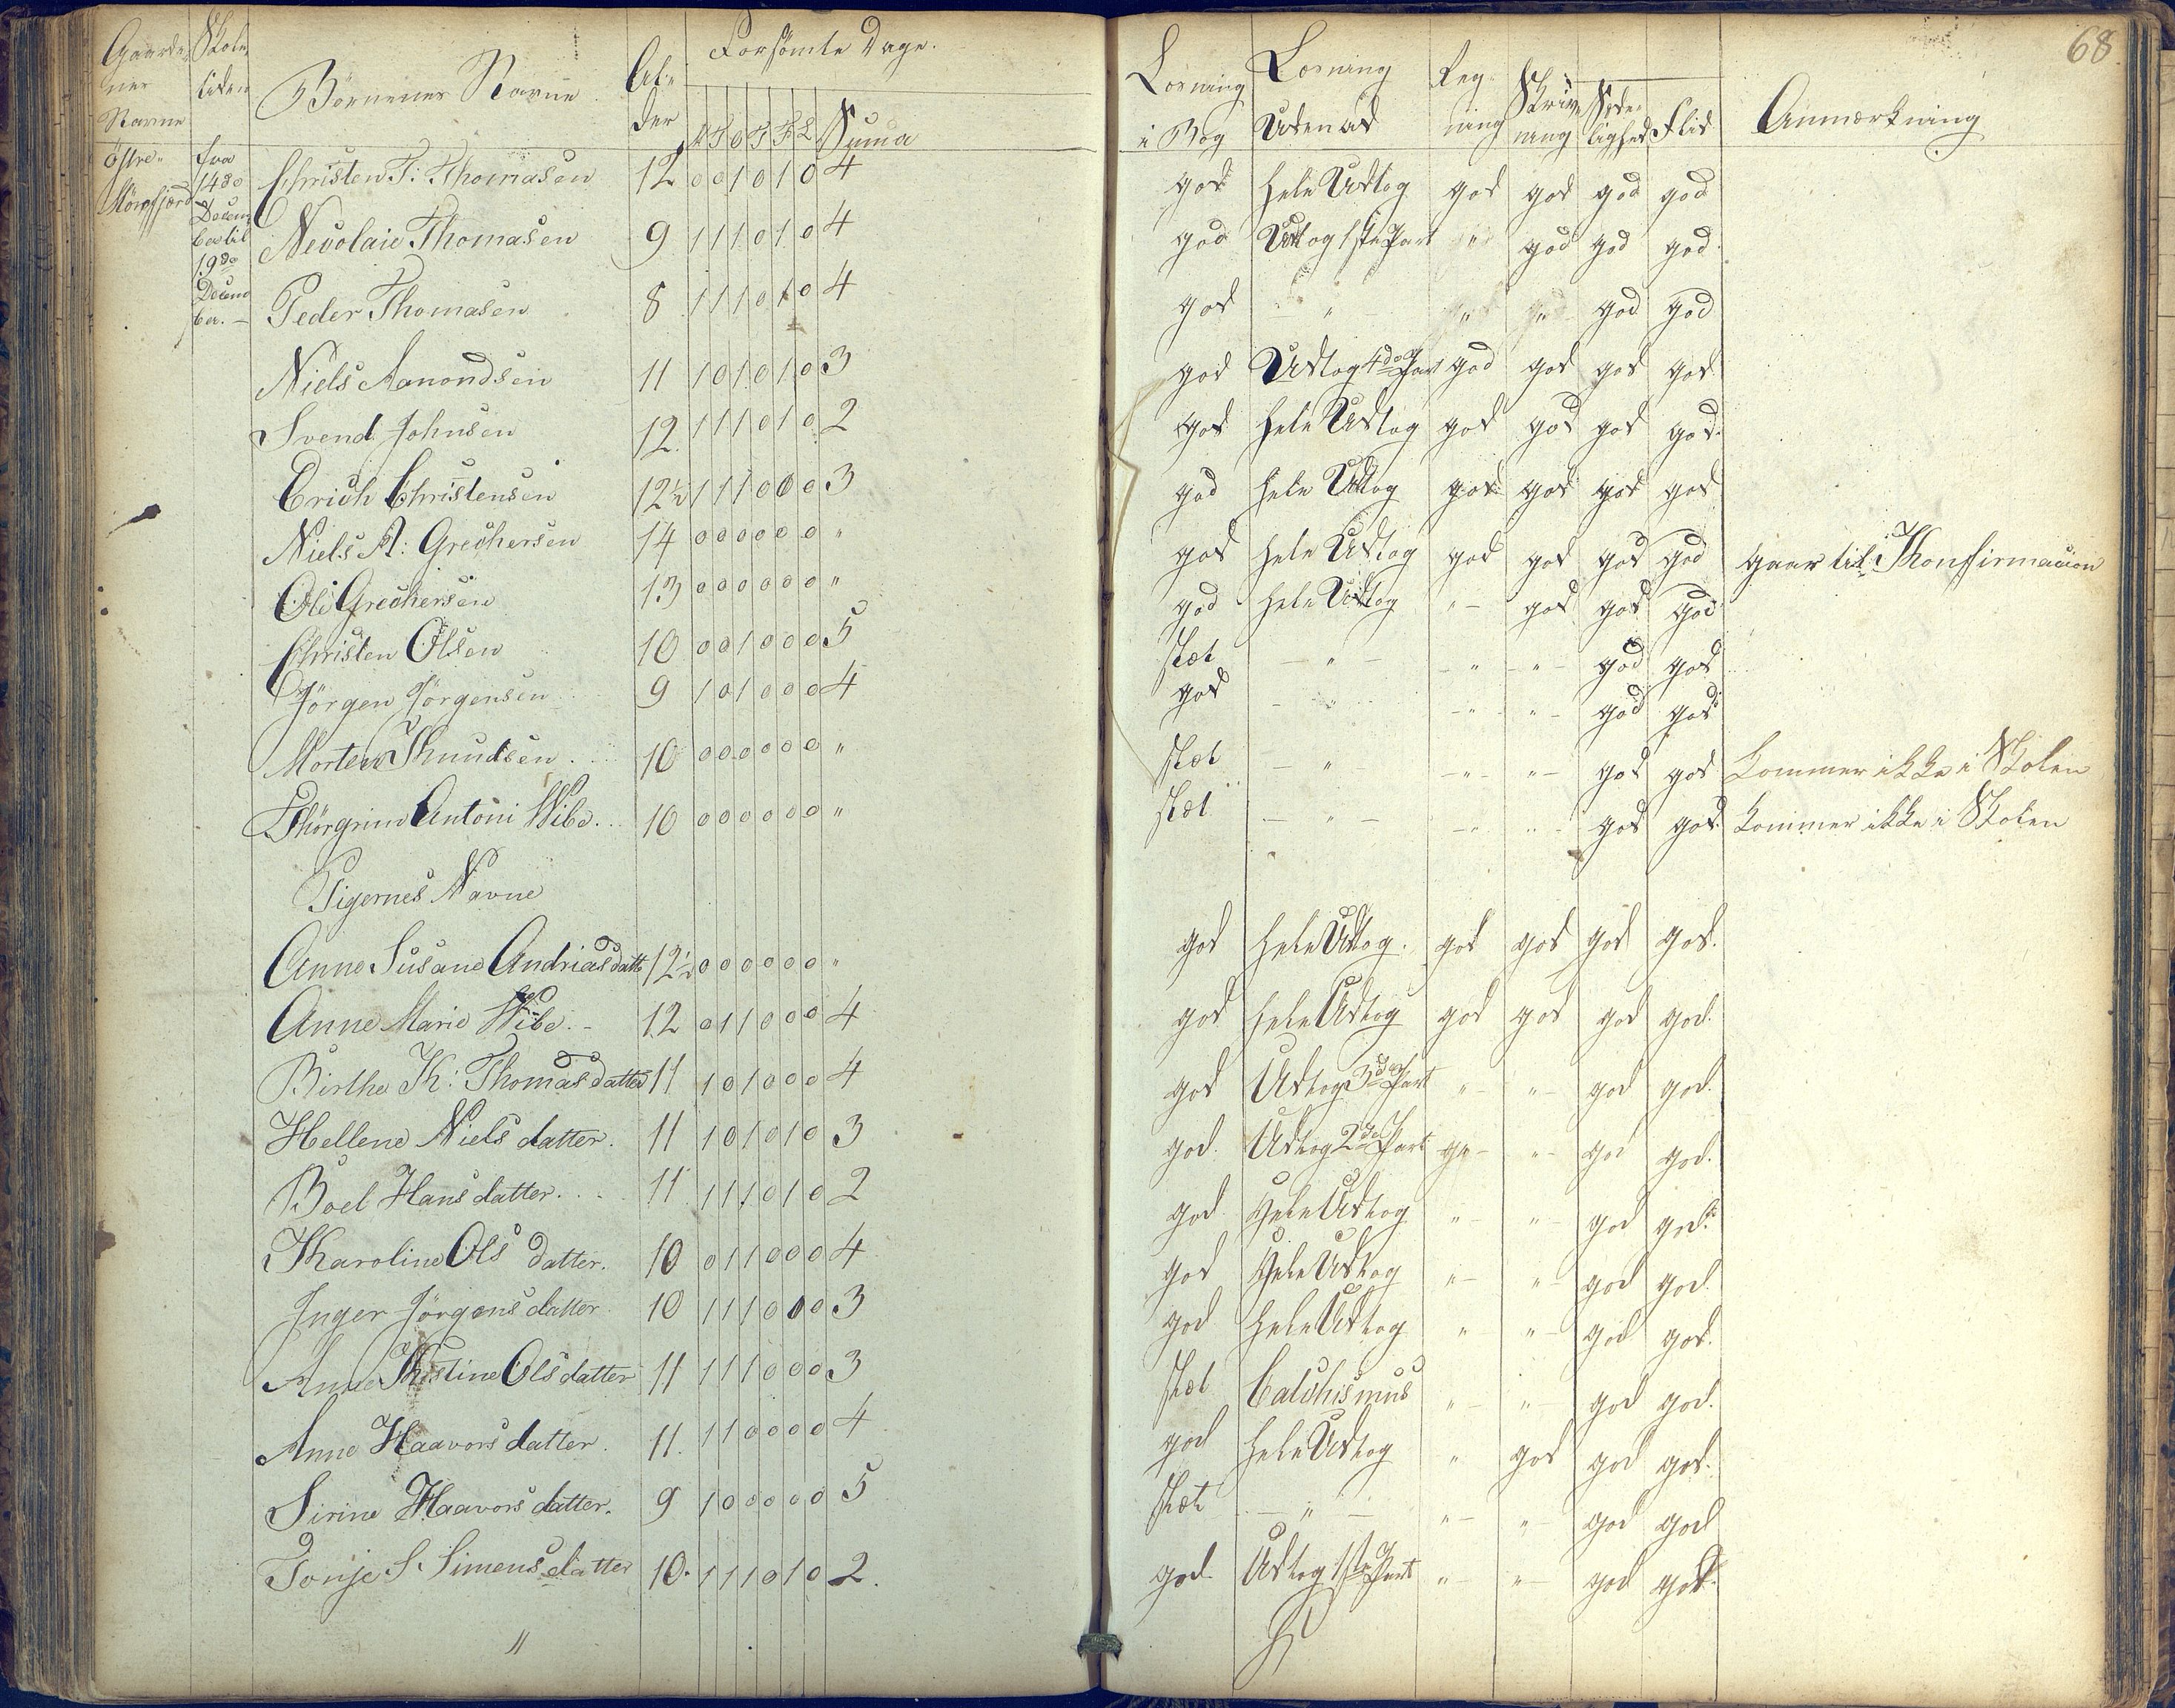 68
Gaarde= Skole Börnenes Navne Al= Forsömte Dage. Læsning Læsning Reg= Skriv= Sæde= Flid Anmærkning
nes tiden der M T O T F L Summa i Bog Udenad ning ning lighed
Navne
Östre= fra Christen T: Thomasen 12 0 0 1 0 1 0 4 god hele Udtog god god god god
14de
Decem Nicolaie Thomasen 9 1 1 1 0 1 0 4 god Udtog 1ste Part " god god god
ber til
19de
Decem Peder Thomasen 8 1 1 1 0 1 0 4 god " " " god god
ber. –
Niels Aanondsen 11 1 0 1 0 1 0 3 god Udtog 4de Part god god god god
Svend Johnsen 12. 1 1 1 0 1 0 2 god hele Udtog god god god god.
Erich Christensen 12½ 1 1 1 0 0 0 3 god hele Udtog god god god god
Niels A: Grechersen 14 0 0 0 0 0 0 " god hele Udtog god god god god gaar til Konfirmacion
Ole Grechersen 13 0 0 0 0 0 0 " god hele Udtog " – god god god
Christen Olsen 10 0 0 1 0 0 0 5 slet – " – – " – " – god god
Jörgen Jörgensen 9 1 0 1 0 0 0 4 god – " – " – " – god god
Morten Knudsen. 10 0 0 0 0 0 0 " slet – " – " – " – god god kommer ikke i Skolen
Thörgrim Antoni Wibe. 10 0 0 0 0 0 0 " slet – " – – " " – god god. kommer ikke i Skolen
Pigernes Navne
Anne Susane Andriasdatt 12½ 0 0 0 0 0 0 " god hele Udtog. god god god god.
Anne Marie Wibe. – 12 0 1 1 0 0 0 4 god hele Udtog god god god god.
Birthe K: Thomasdatter 11 1 0 1 0 0 0 4 god Udtog 3de Part " – " – god god.
Hellene Niels datter. 11 1 0 1 0 1 0 3 god. Udtog 2den Part " – " – god god.
Boel Hans datter. 11 1 1 1 0 1 0 2 god. Hele Udtog " – " – god god.
Karoline Ols datter. 10 0 1 1 0 0 0 4 god Hele Udtog " – " – god god.
Inger Jörgens datter. 10 1 1 1 0 0 0 3 god hele Udtog " – " – god god.
Anne Kistine Ols datter 11 1 1 1 0 0 0 3 slet Catchismus " – " – god god.
Anne Haavors datter. 11. 1 1 0 0 0 0 4 god hele Udtog " god god god.
Sirine Haavors datter. 9 1 0 0 0 0 0 5 slet – " – " – " – god god
Tonje S. Simens datter 10. 1 1 1 0 1 0 2. god. Udtog 1ste Part " – " – god god.
"